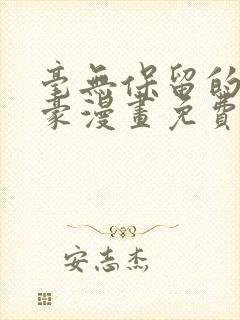 毫無保留的
豪漫畫免費
安志杰